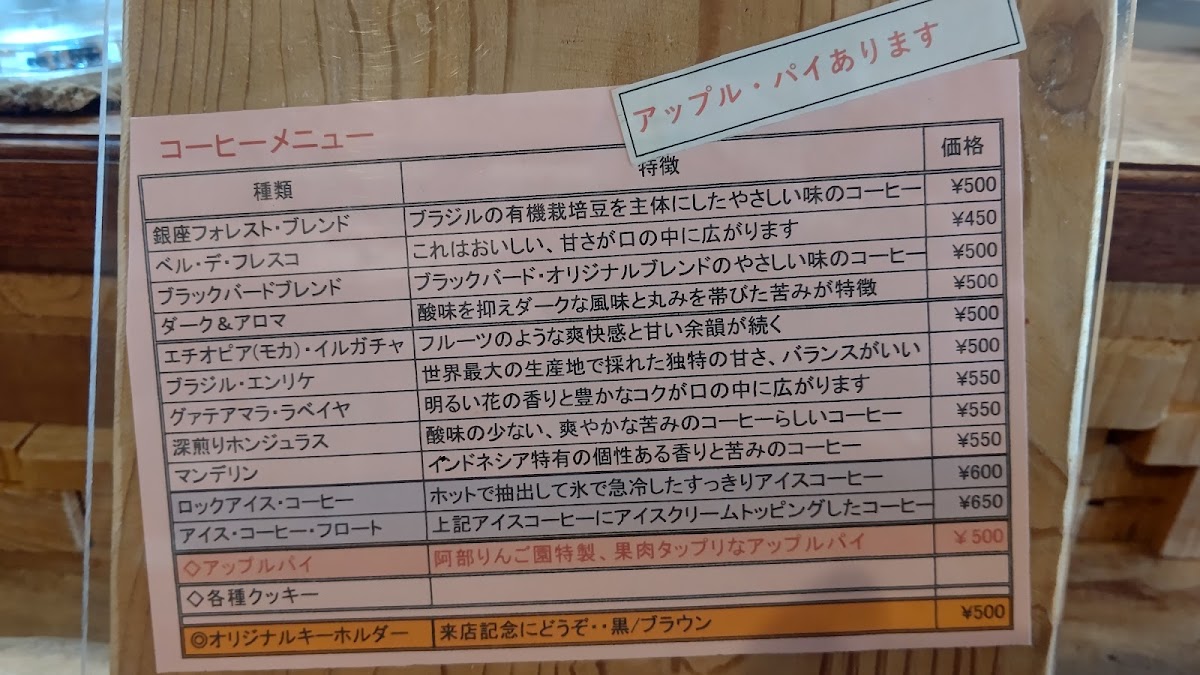 アップル・パイあります
コーヒーメニュー
種類 特徴 価格
銀座フォレスト・ブレンド ブラジルの有機栽培豆を主体にしたやさしい味のコーヒー ¥500
ベル・デ・フレスコ これはおいしい、甘さが口の中に広がります ¥450
ブラックバードブレンド ブラックバード・オリジナルブレンドのやさしい味のコーヒー ¥500
ダーク&アロマ 酸味を抑えダークな風味と丸みを帯びた苦みが特徴 ¥500
エチオピア(モカ)・イルガチャ フルーツのような爽快感と甘い余韻が続く ¥500
ブラジル・エンリケ 世界最大の生産地で採れた独特の甘さ、バランスがいい ¥500
グァテアマラ・ラベイヤ 明るい花の香りと豊かなコクが口の中に広がります ¥550
深煎りホンジュラス 酸味の少ない、爽やかな苦みのコーヒーらしいコーヒー ¥550
マンデリン インドネシア特有の個性ある香りと苦みのコーヒー ¥550
ロックアイス・コーヒー ホットで抽出して氷で急冷したすっきりアイスコーヒー ¥600
アイス・コーヒー・フロート 上記アイスコーヒーにアイスクリームトッピングしたコーヒー ¥650
◇アップルパイ 阿部りんご園特製、果肉タップリなアップルパイ ¥500
◇各種クッキー
◎オリジナルキーホルダー 来店記念にどうぞ・・黒/ブラウン ¥500